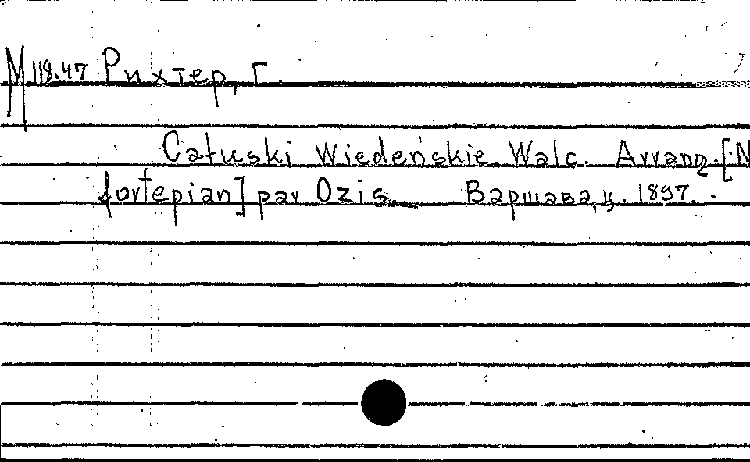 М 119.47 Рихтер, Г.
Całuski Wiedeńskie. Walc. Arrang. [N
fortepian] par Ozis Варшава, ц. 1897.